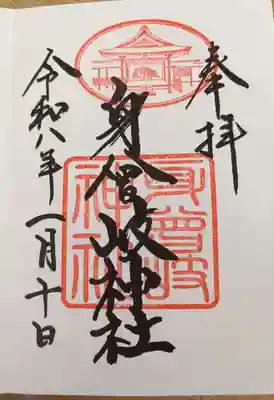 奉拝
身曾岐神社
身曾岐
神社
令和八年一月十日